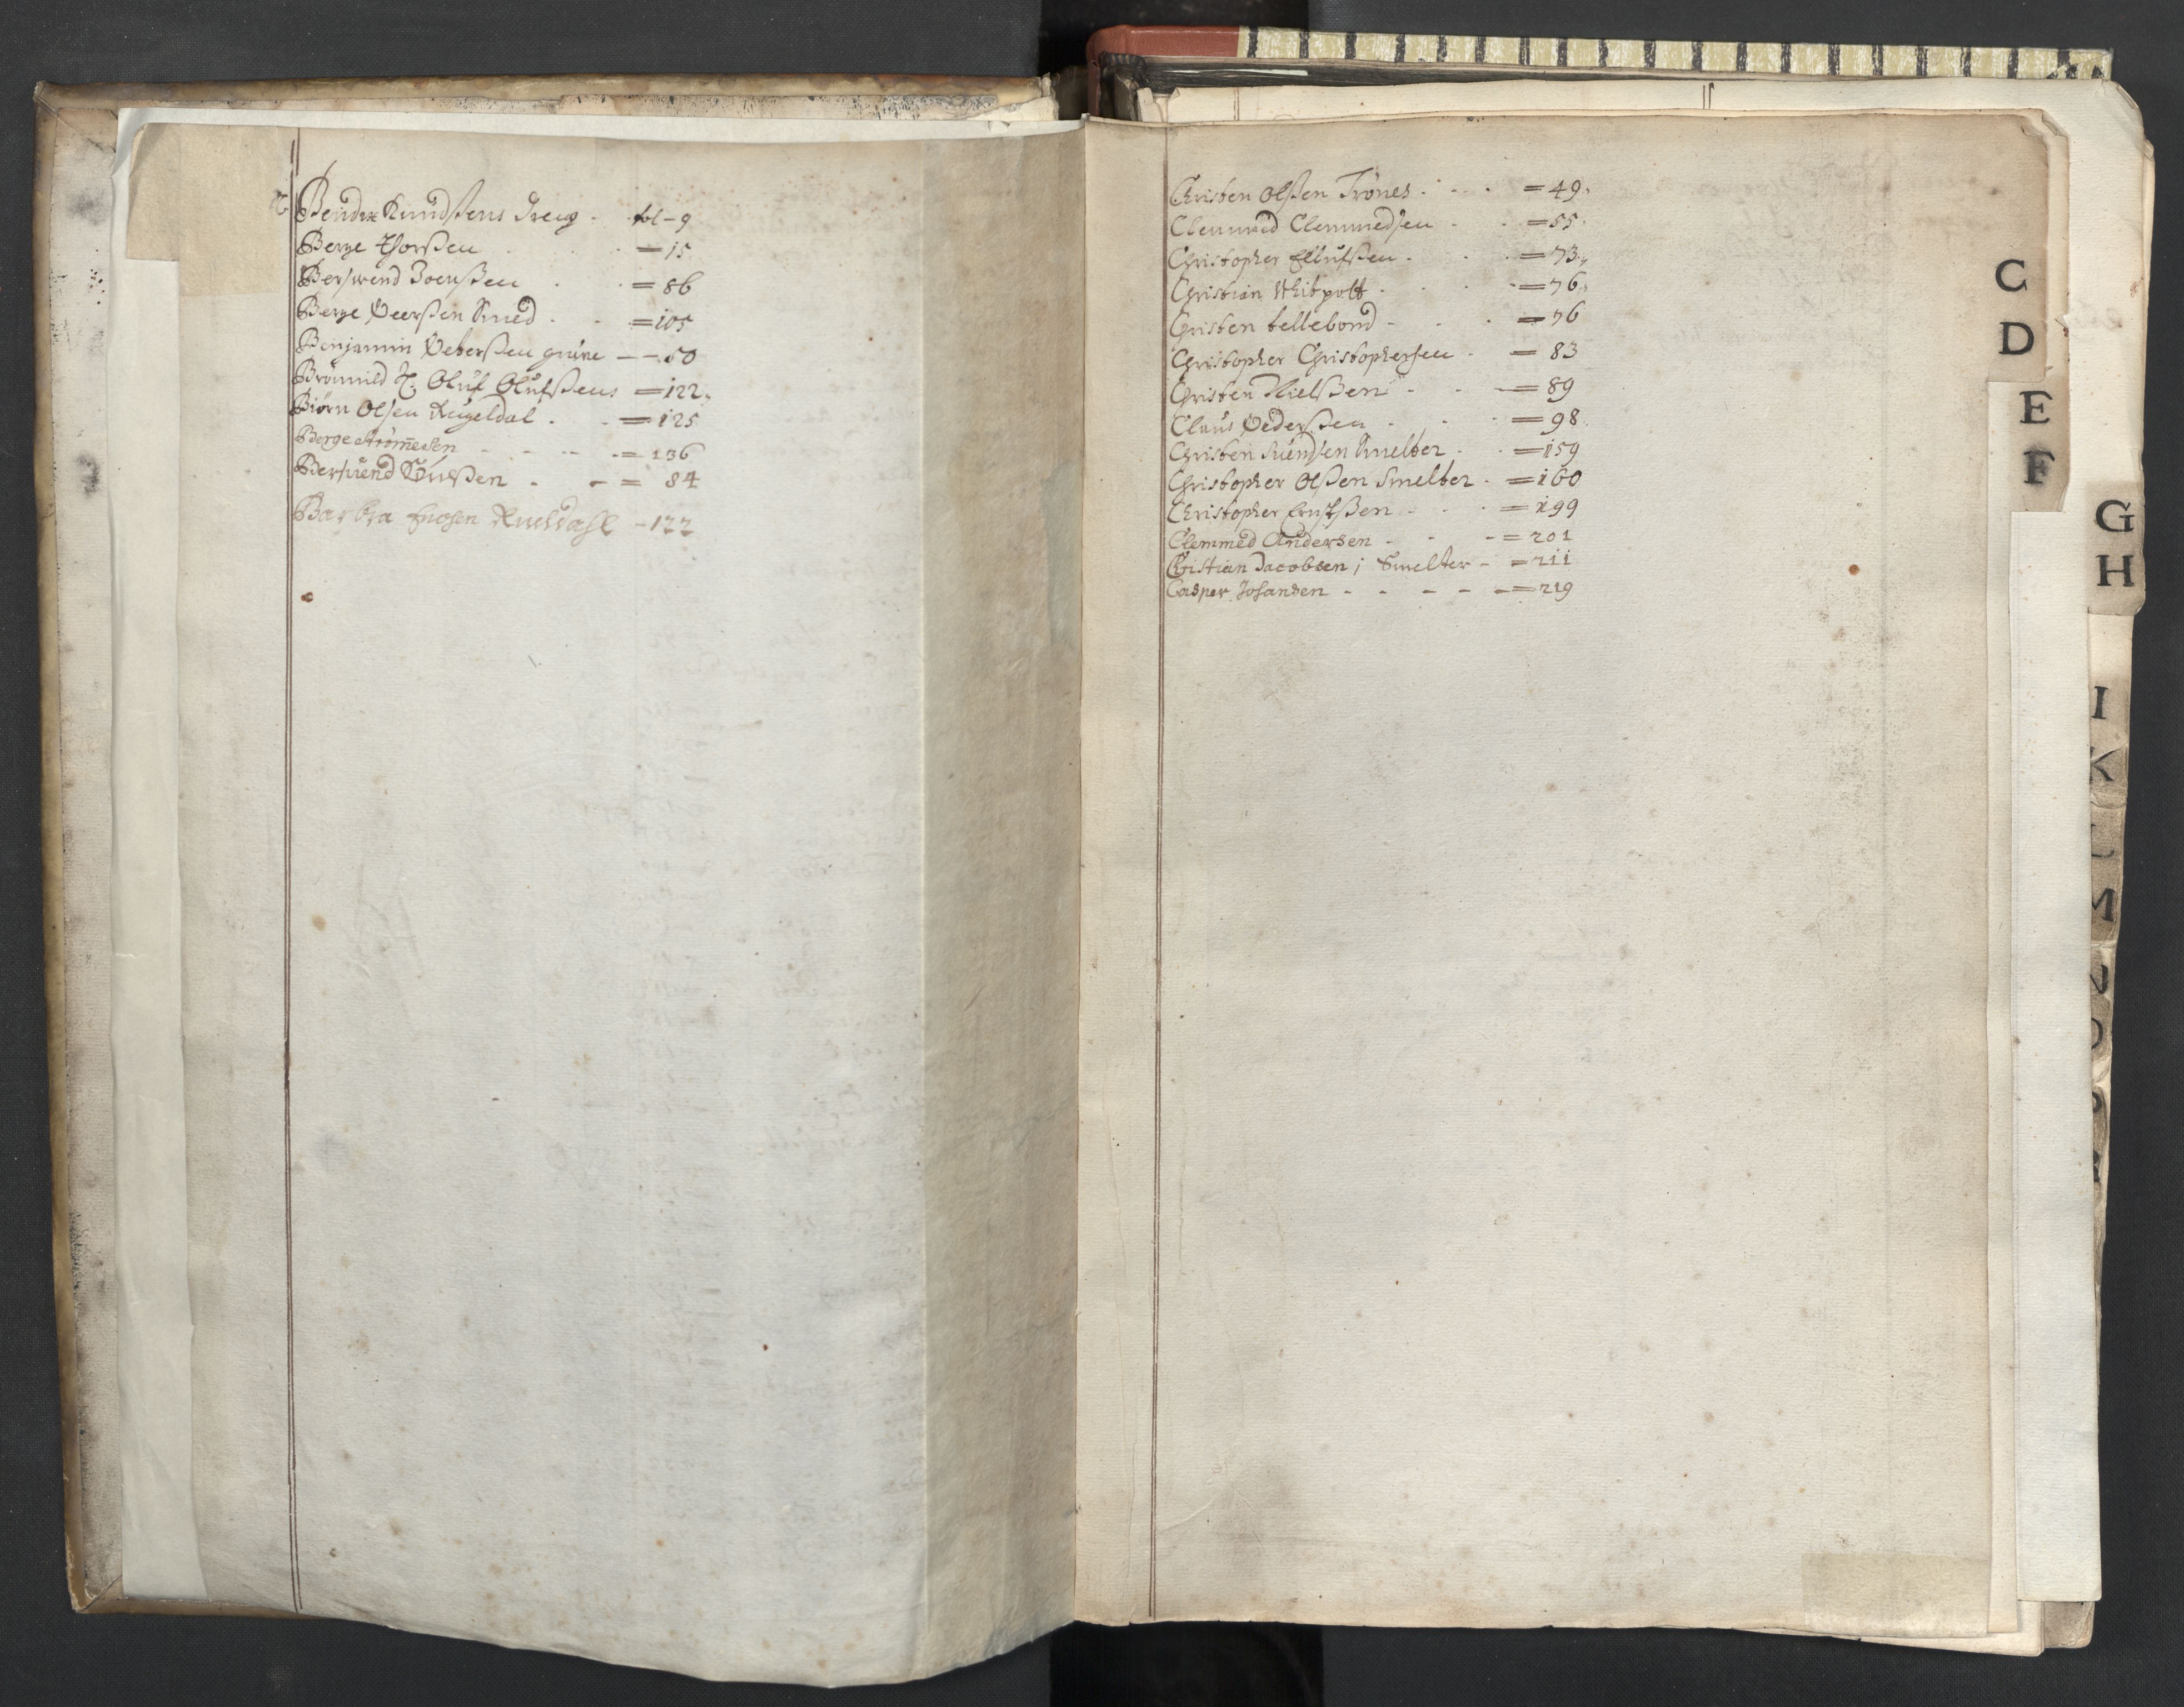 Bendix Knudßens dreng - fol - 9
Berge Thorßen = 15
Berswend Joenßen = 86
Berge Peerßen Smed = 105
Benjamin Peterßen grüve - - 50
Brønnild Oluf Olufßens = 122
Biörn Olsen Rugeldal = 125
Berge Strøm̄esen = 136
Bersuend = 84
Barbra Rueldahl - 122
Christen Olßen Trönes = 49
Clemmed Clemmedsen = 55
Christopher Ellufßen = 73
Christian = 76
Christen tellebond = 76
Christopher Christophersen = 83
Christen Nielßen = 89
Claus Pederßen = 98
Christen Suendsen Smelter = 159
Christopher Olßen Smelter = 160
Christopher Ernstßen = 199
Clemmed Andersen = 201
Christian Jacobsen ; Smelter = 211
Casper Johansen = 219
C
D
E
F
G
H
I
K
L
M
N
O
P